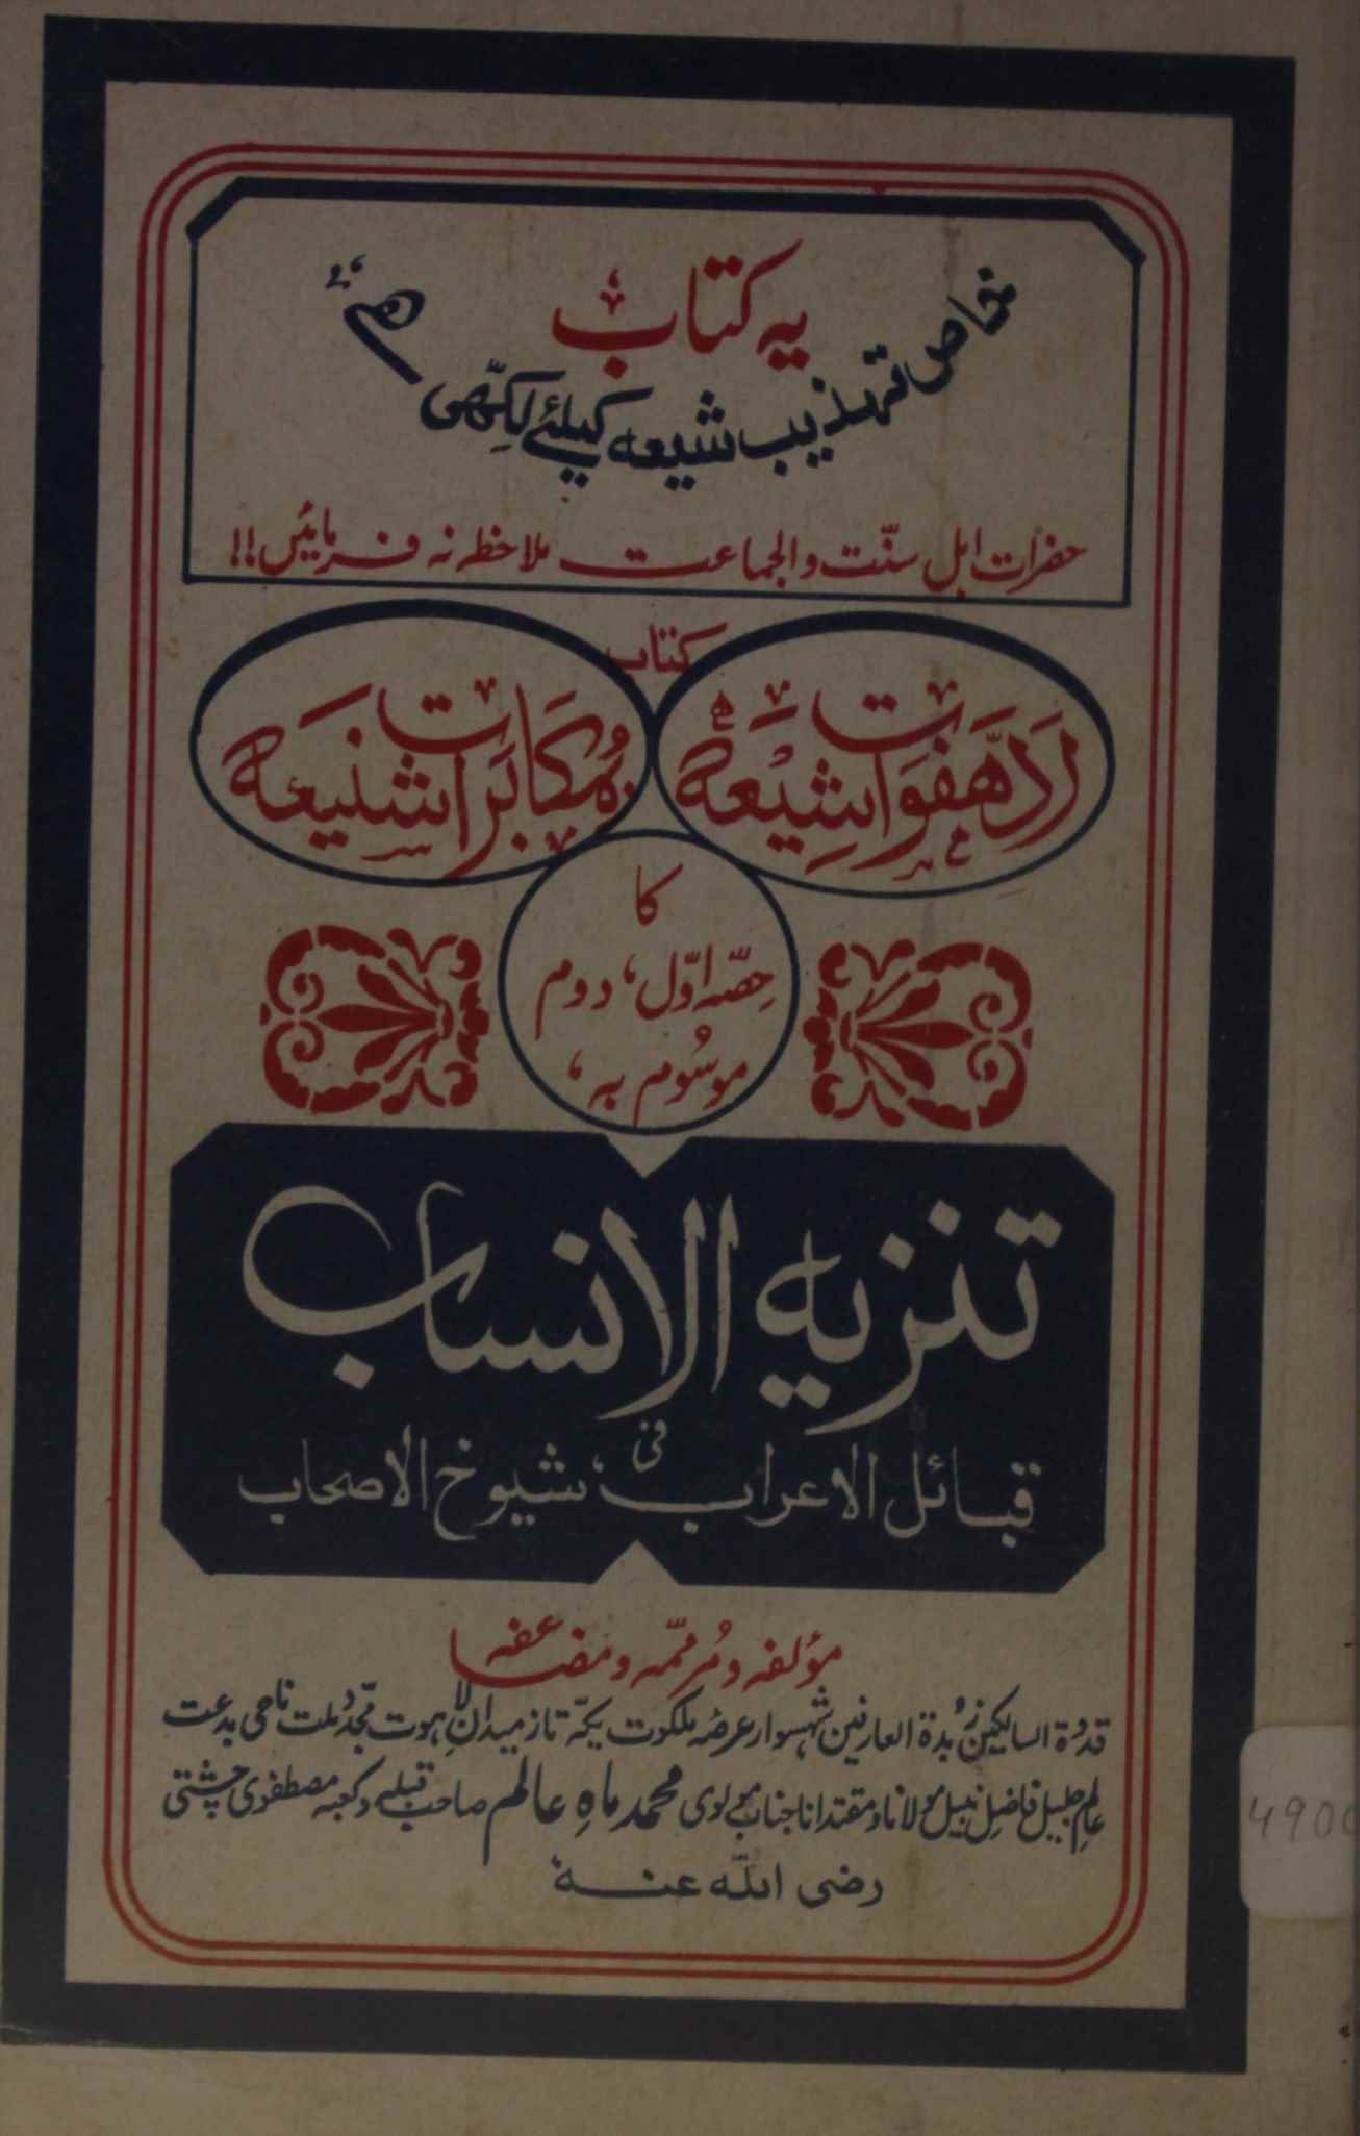 یہ کتاب
خاص تہذیب شیعہ کیلئے لکھی ہے
حضرات اہل سنّت والجماعت ملاحظہ نہ فرمائیں!!
کتاب
ردّ ہفوات شیعہ
بمُکابرات شنیعہ
کا
حصّہ اوّل، دوم
موسُوم بہ،
تنزیہ الانساب
فی
قبائل الاعراب، شیوخ الاصحاب
مؤلفہ و مُرمّمہ و مضاعفہ
قدوۃ السالکین زبدۃ العارفین شہسوار عرصۂ ملکوت یکّہ تاز میدانِ لاہوت مجدّد ملت ماحی بدعت
عالم جلیل فاضل نبیل مولانا و مقتدانا جناب مولوی محمد ماہِ عالم صاحب قبلہ و کعبہ مصطفوی چشتی
رضی اللّٰہ عنہ
490